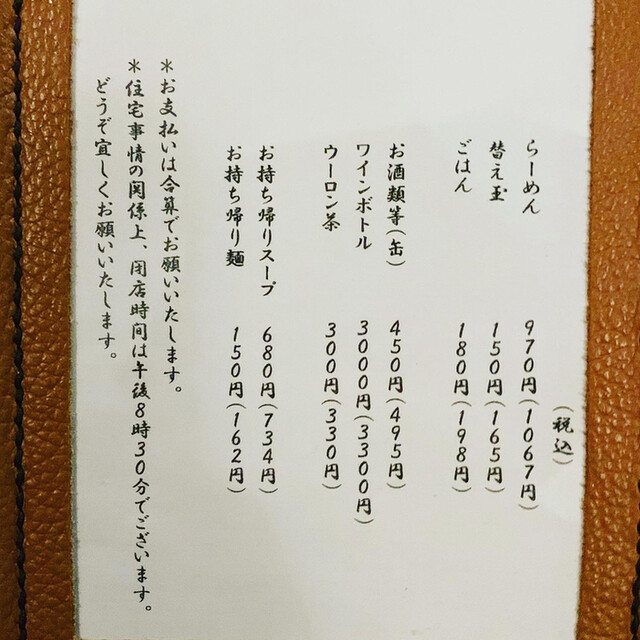 (税込)
らーめん 970円(1067円)
替え玉 150円(165円)
ごはん 180円(198円)
お酒類等(缶) 450円(495円)
ワインボトル 3000円(3300円)
ウーロン茶 300円(330円)
お持ち帰りスープ 680円(734円)
お持ち帰り麺 150円(162円)
*お支払いは合算でお願いいたします。
*住宅事情の関係上、閉店時間は午後8時30分でございます。
どうぞ宜しくお願いいたします。